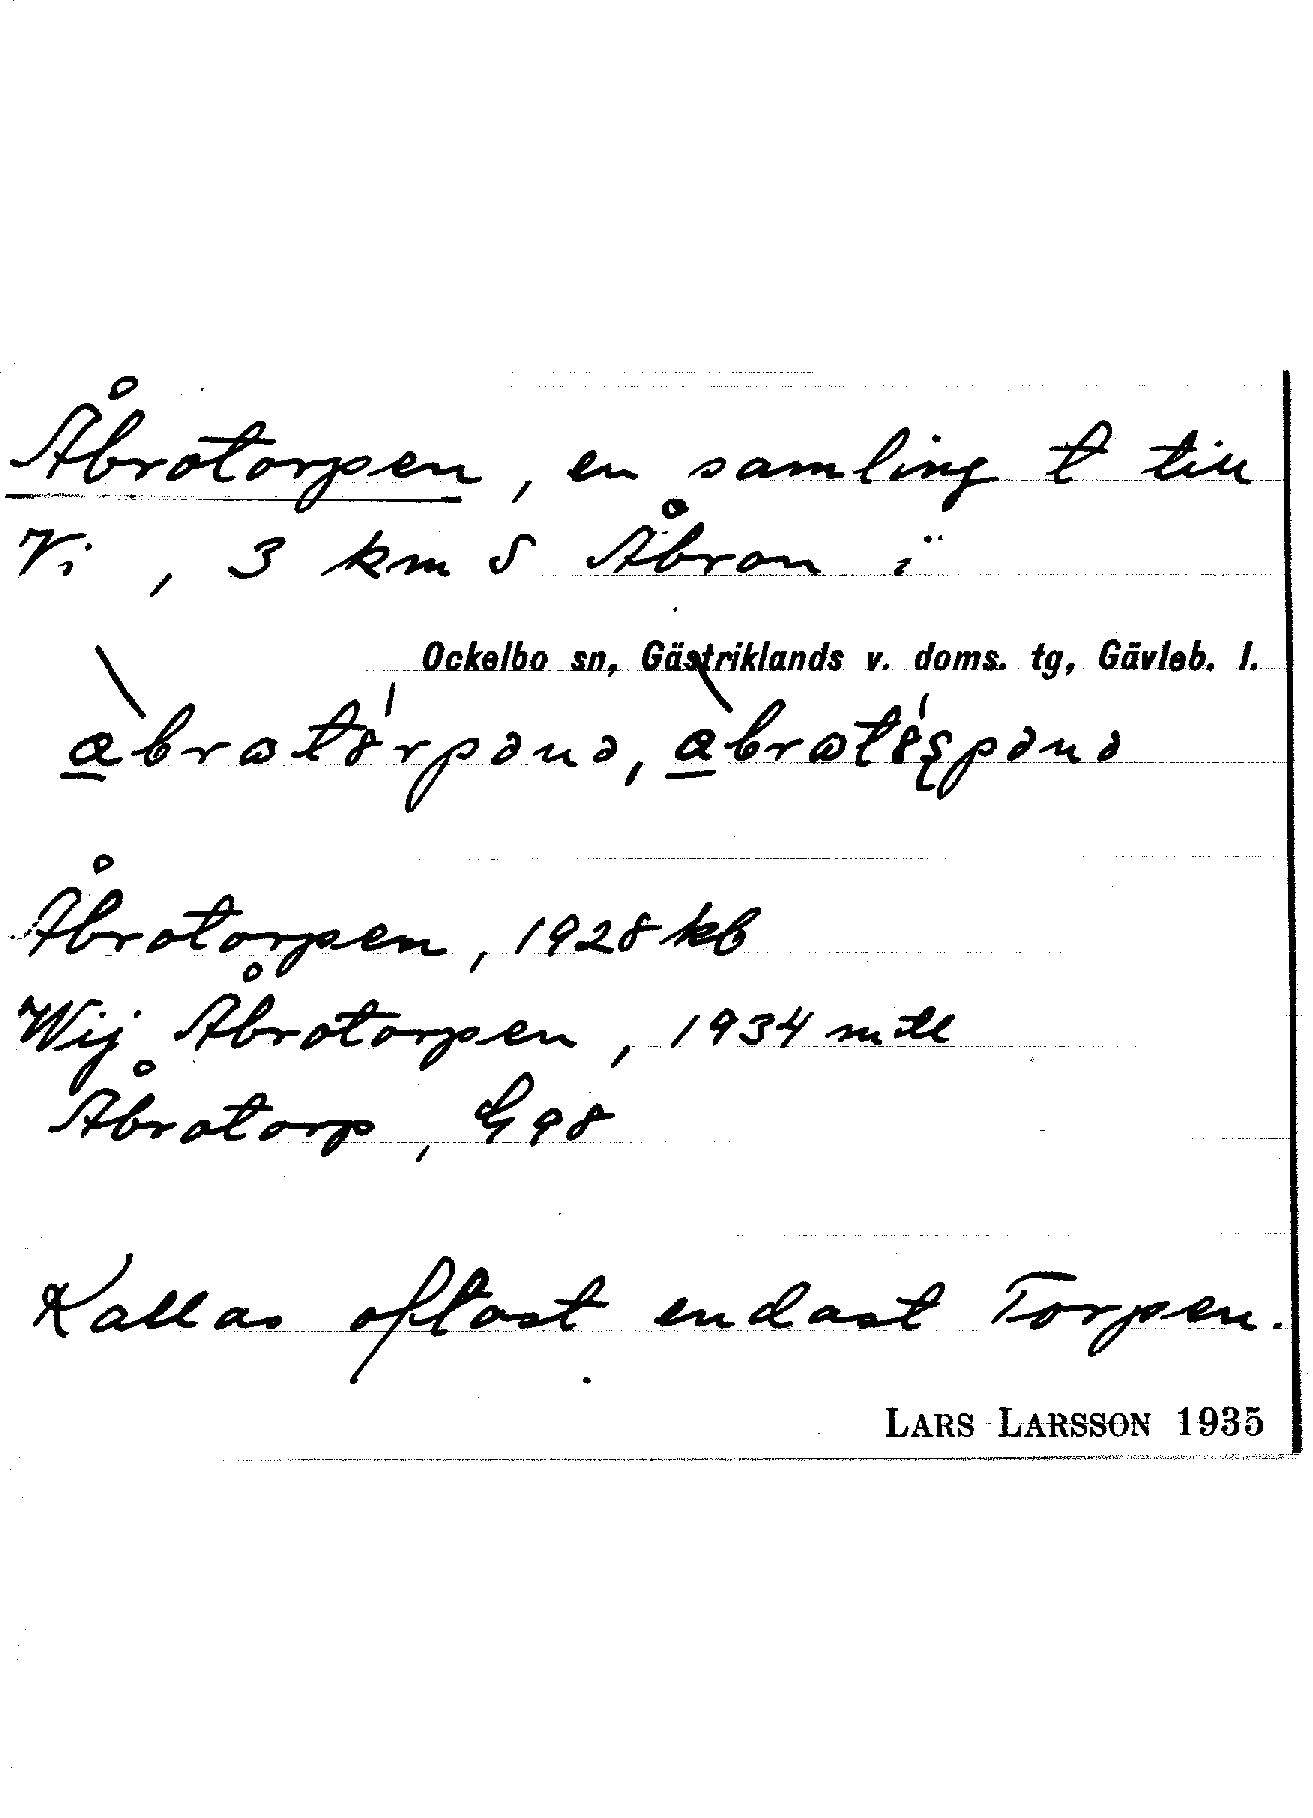 Åbrotorpen, en samling t till
Vi, 3 km S Åbron i
Ockelbo sn, Gästriklands v. doms. tg, Gävleb. l.
Åbrotorpen, 1928 kb
Wij Åbrotorpen, 1934 mtl
Åbrotorp, G 98
Kallas oftast endast Torpen.
LARS LARSSON 1935